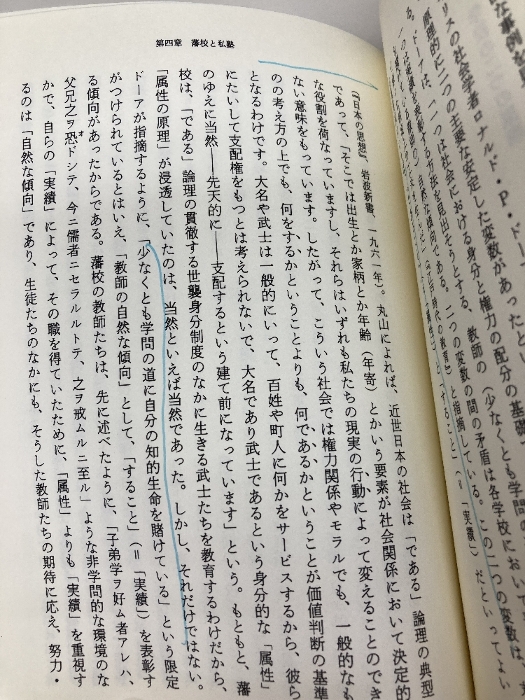 な事例
リスの社会学者ロナルド・P・ド
原理的に二つの主要な安定した変数があったと、
ドーアは、一つは社会における身分と権力の配分の基礎
を見出そうとする、教師の（少なくとも学問の
自然な傾向である。二つの変数の間の矛盾は各学校におい
」と指摘している。この二つの変数は、
「すること」（＝「実績」）だといってよい
第四章　藩校と私塾
（『日本の思想』、岩波新書、一九六一年）。丸山によれば、近世日本の社会は「である」論理の典型
であって、「そこでは出生とか家柄とか年齢（年寄）とかいう要素が社会関係において決定的
な役割を荷なっていますし、それらはいずれも私たちの現実の行動によって変えることのでき
ない意味をもっています。したがって、こういう社会では権力関係やモラルでも、一般的な
のの考え方の上でも、何をするかということよりも、何であるかということが価値判断の基準
となるわけです。大名や武士は一般的にいって、百姓や町人に何かをサービスするから、彼ら
にたいして支配権をもつとは考えられないで、大名であり武士であるという身分的な「属性」
のゆえに当然――先天的に――支配するという建て前になっています」という。もともと、藩
校は、「である」論理の貫徹する世襲身分制度のなかに生きる武士たちを教育するわけだから、
「属性の原理」が浸透していたのは、当然といえば当然であった。しかし、それだけではない。
ドーアが指摘するように、「少なくとも学問の道に自分の知的生命を賭けている」という限定
がつけられているとはいえ、「教師の自然な傾向」として、「すること」（＝「実績」）を表彰す
る傾向があったからである。藩校の教師たちは、先に述べたように、「子弟学ヲ好ム者アレハ、
父兄之ヲ恐ドシテ、今ニ儒者ニセラルルトテ、之ヲ戒ムルニ至ル」ような非学問的な環境のな
かで、自らの「実績」によって、その職を得ていたために、「属性」よりも「実績」を重視す
るのは「自然な傾向」であり、生徒たちのなかにも、そうした教師たちの期待に応え、努力・